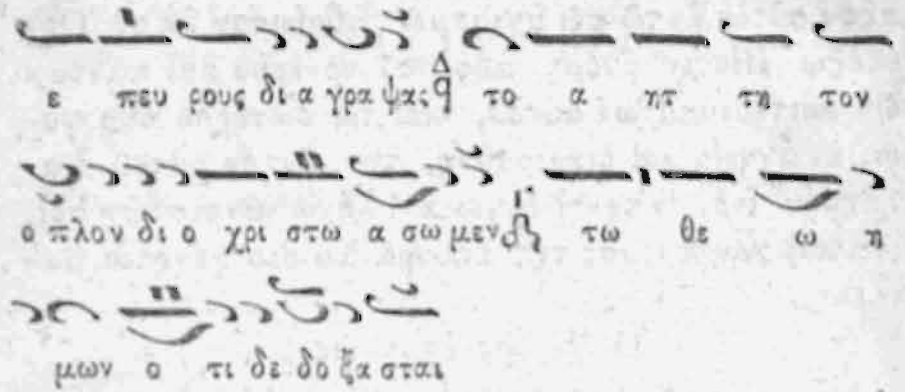 ε πευ ρους δι α γρα ψας Δ το α ητ τη τον
ο πλον δι ο χρι στω α σω μεν τω θε ω η
μων ο τι δε δο ξα σται